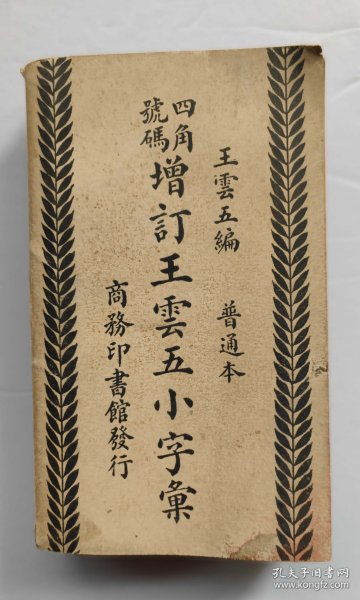 王雲五編 普通本
四角號碼
增訂王雲五小字彙
商務印書館發行
孔夫子旧书网
www.kongfz.com